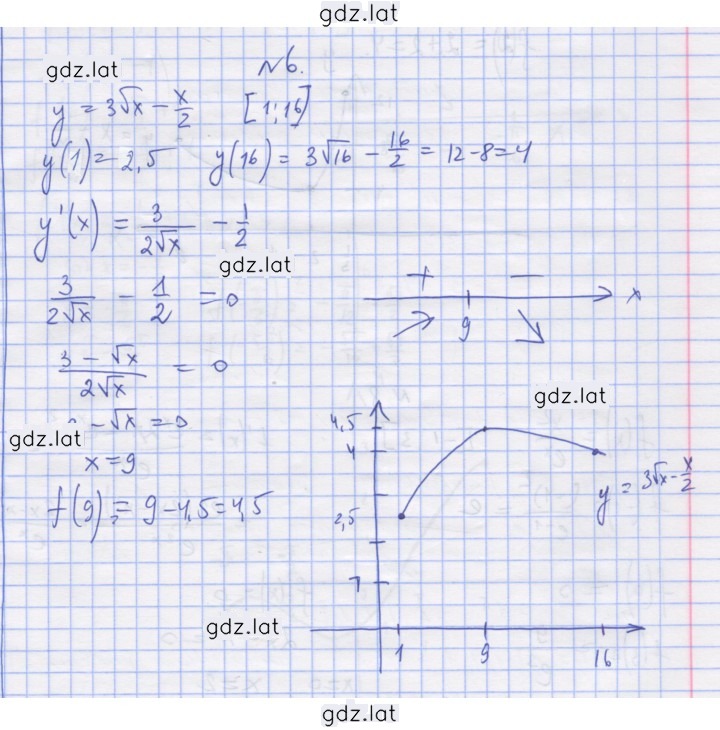 gdz.lat
gdz.lat
№6.
y = 3√x − x/2 [1;16]
y(1) = 2,5 y(16) = 3√16 − 16/2 = 12 − 8 = 4
y'(x) = 3/(2√x) − 1/2
gdz.lat
3/(2√x) − 1/2 = 0
+ −
9 x
(3 − √x)/(2√x) = 0
gdz.lat
− √x = 0
gdz.lat
x = 9
f(9) = 9 − 4,5 = 4,5
4,5
4
y = 3√x − x/2
2,5
1
gdz.lat
1 9 16
gdz.lat